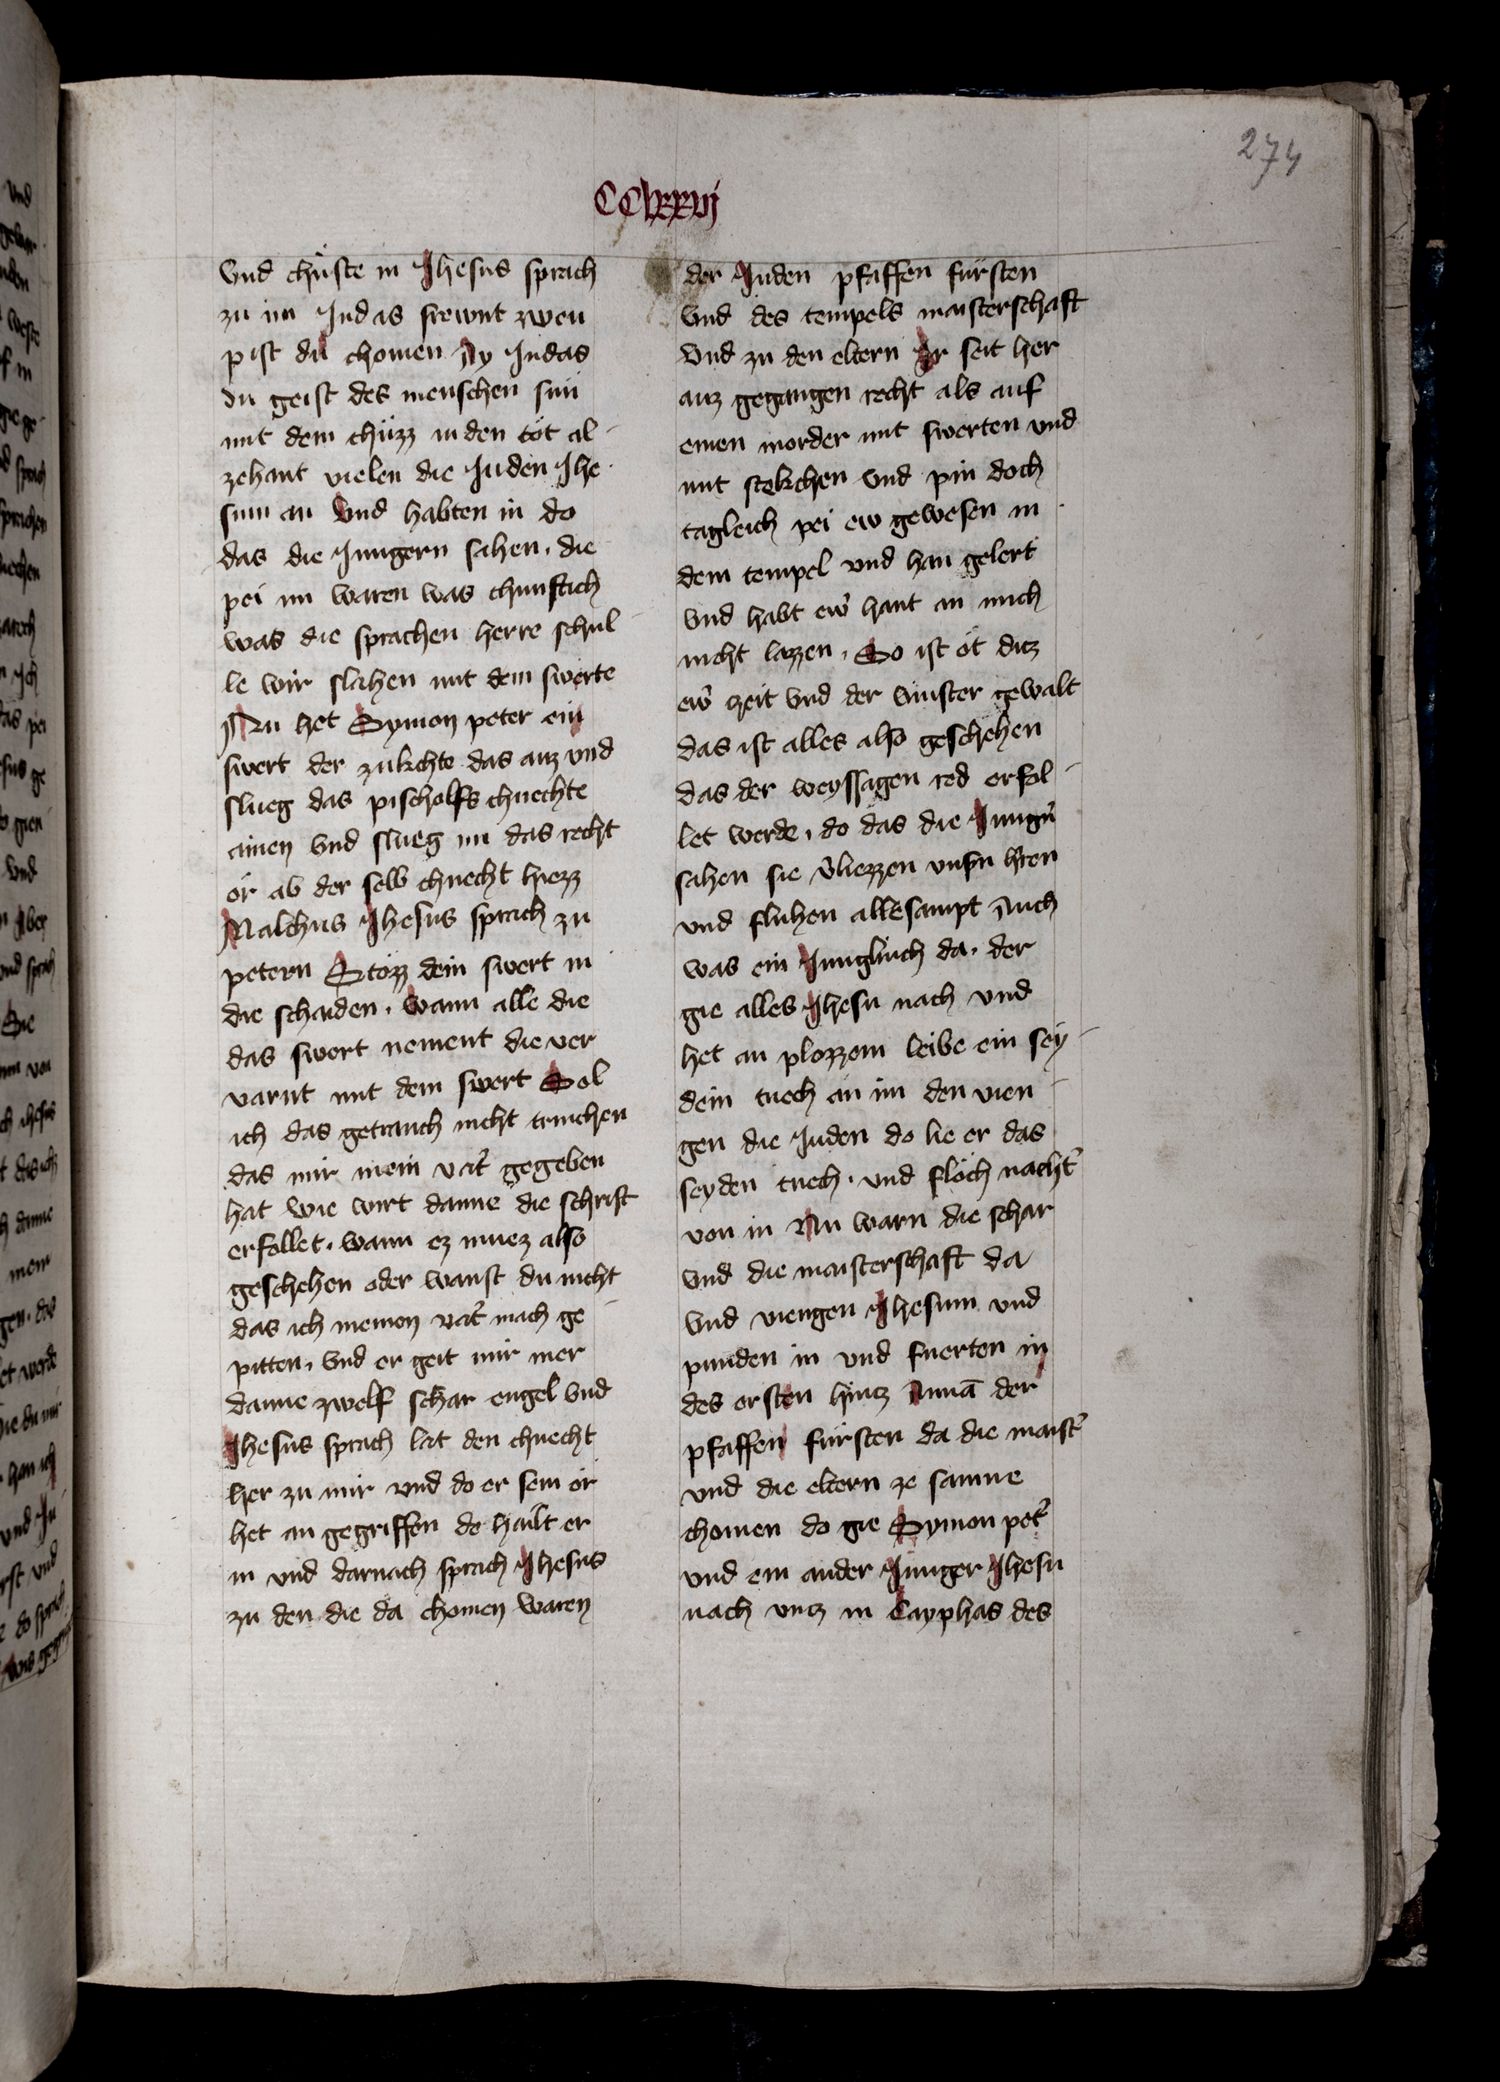 274
CClxxvij
Vnd chüste in Jhesus sprach
zu im Judas frewnt zweu
pist dű chomen Ay Judas
du geist des menschen sun
mit dem chüzz in den tot al-
zehant vielen die Juden Jhe-
sum an Vnd habten in do
das die Jungern sahen. die
pei im waren was chunftich
was die sprachen herre schul-
le wir slahen mit dem swerte
Nu het Symon peter ein
swert der zukchte das auz vnd
slueg das pischolfs chnechte
ainen Vnd slueg im das recht
ör ab der selb chnecht hiezz
Malchus Jhesus sprach zu
petern Stözz dein swert in
die schaiden. wann alle die
das swert nement die ver
varnt mit dem swert Sol
ich das getranch nicht trinchen
das mir mein vat̉ gegeben
hat wie wirt danne die schrift
erfollet. wann ez muez also
geschehen oder wanst du nicht
das ich meinen vat̉ mach ge-
pitten. Vnd er geit mir mer
danne zwelf schar engel Vnd
Jhesus sprach lat den chnecht
her zu mir vnd do er sein ör
het an gegriffen do hailt er
in vnd darnach sprach Jhesus
zu den die da chomen waren
der Juden pfaffen fürsten
Vnd des tempels maisterschaft
Vnd zu den eltern Ir seit her
auz gegangen recht als auf
einen morder mit swerten vnd
mit stekchen Vnd pin doch
tagleich pei ew gewesen in
dem tempel vnd han gelert
Vnd habt ew̉ hant an mich
nicht lazzen. So ist öt ditz
ew̉ zeit Vnd der Vinster gewalt
das ist alles also geschehen
das der weyssagen red erfol-
let werde. do das die Jung̉n
sahen sie v̉liezzen vnsn h̉ren
vnd fluhen allesampt Auch
was ein Junglinch da. der
gie alles Jhesu nach vnd
het an plozzem leibe ein sey-
dein tuech an im den vien-
gen die Juden do lie er das
seyden tuech. vnd flöch nacht̉
von in Nu warn die schar
Vnd die maisterschaft da
Vnd viengen Jhesum vnd
punden in vnd fuerten in
des ersten hintz Annā der
pfaffen fürsten da die maist̉
vnd die eltern ze samne
chomen do gie Symon pet̉
vnd ein ander Junger Jhesu
nach vntz in Cayphas des